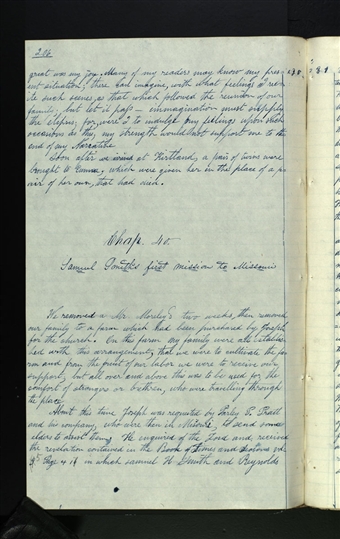 206
great was my joy. Many of my readers may know my pres
ent situation; these can imagine, with what feelings I reci
te such scenes, as that which followed the reunion of our
family; but let it pass — immagination must supply
the
for, were I to indulge my feelings upon such
occasions as this, my strength would not support me to the
end of my Narrative.
Soon after we arrived at Kirtland, a pair of twins were
brought to Emma, which were given her in the place of a p
air of her own, that had died.
Chap. 40.
Samuel Smith's first mission to Missouri
We remained a Mr. Morley's two weeks, then removed
our family to a farm which had been purchased by Joseph
for the church. On this farm my family were all establis
hed with this arrangement, that we were to cultivate the fa
rm and from the fruit of our labor we were to receive our
support; but all over and above this was to be used for the
comfort of strangers or brethren, who were travelling through
the place.
About this time Joseph was requested by Parley P. Pratt
and his company, who were then in Missouri, to send some
elders to assist them. He enquired of the Lord and received
the revelation contained in the Book of Times and Seasons vol
5 Page 416 in which Samuel H. Smith and Reynolds